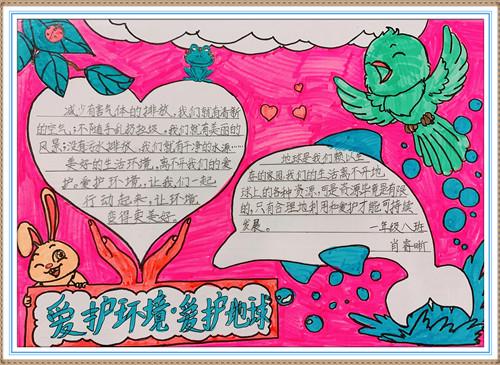 减少有害气体的排放，我们就有清新
的空气；不随手乱扔垃圾，我们就有美丽的
风景；没有污水排放，我们就有干净的水源……
美好的生活环境，离不开我们的爱
护。爱护环境，让我们一起
行动起来，让环境
变得更美好。
地球是我们赖以生
存的家园，我们的生活离不开地
球上的各种资源，可是资源毕竟是有限
的，只有合理地利用和爱护才能可持续
发展。
一年级八班
肖春晰
爱护环境·爱护地球